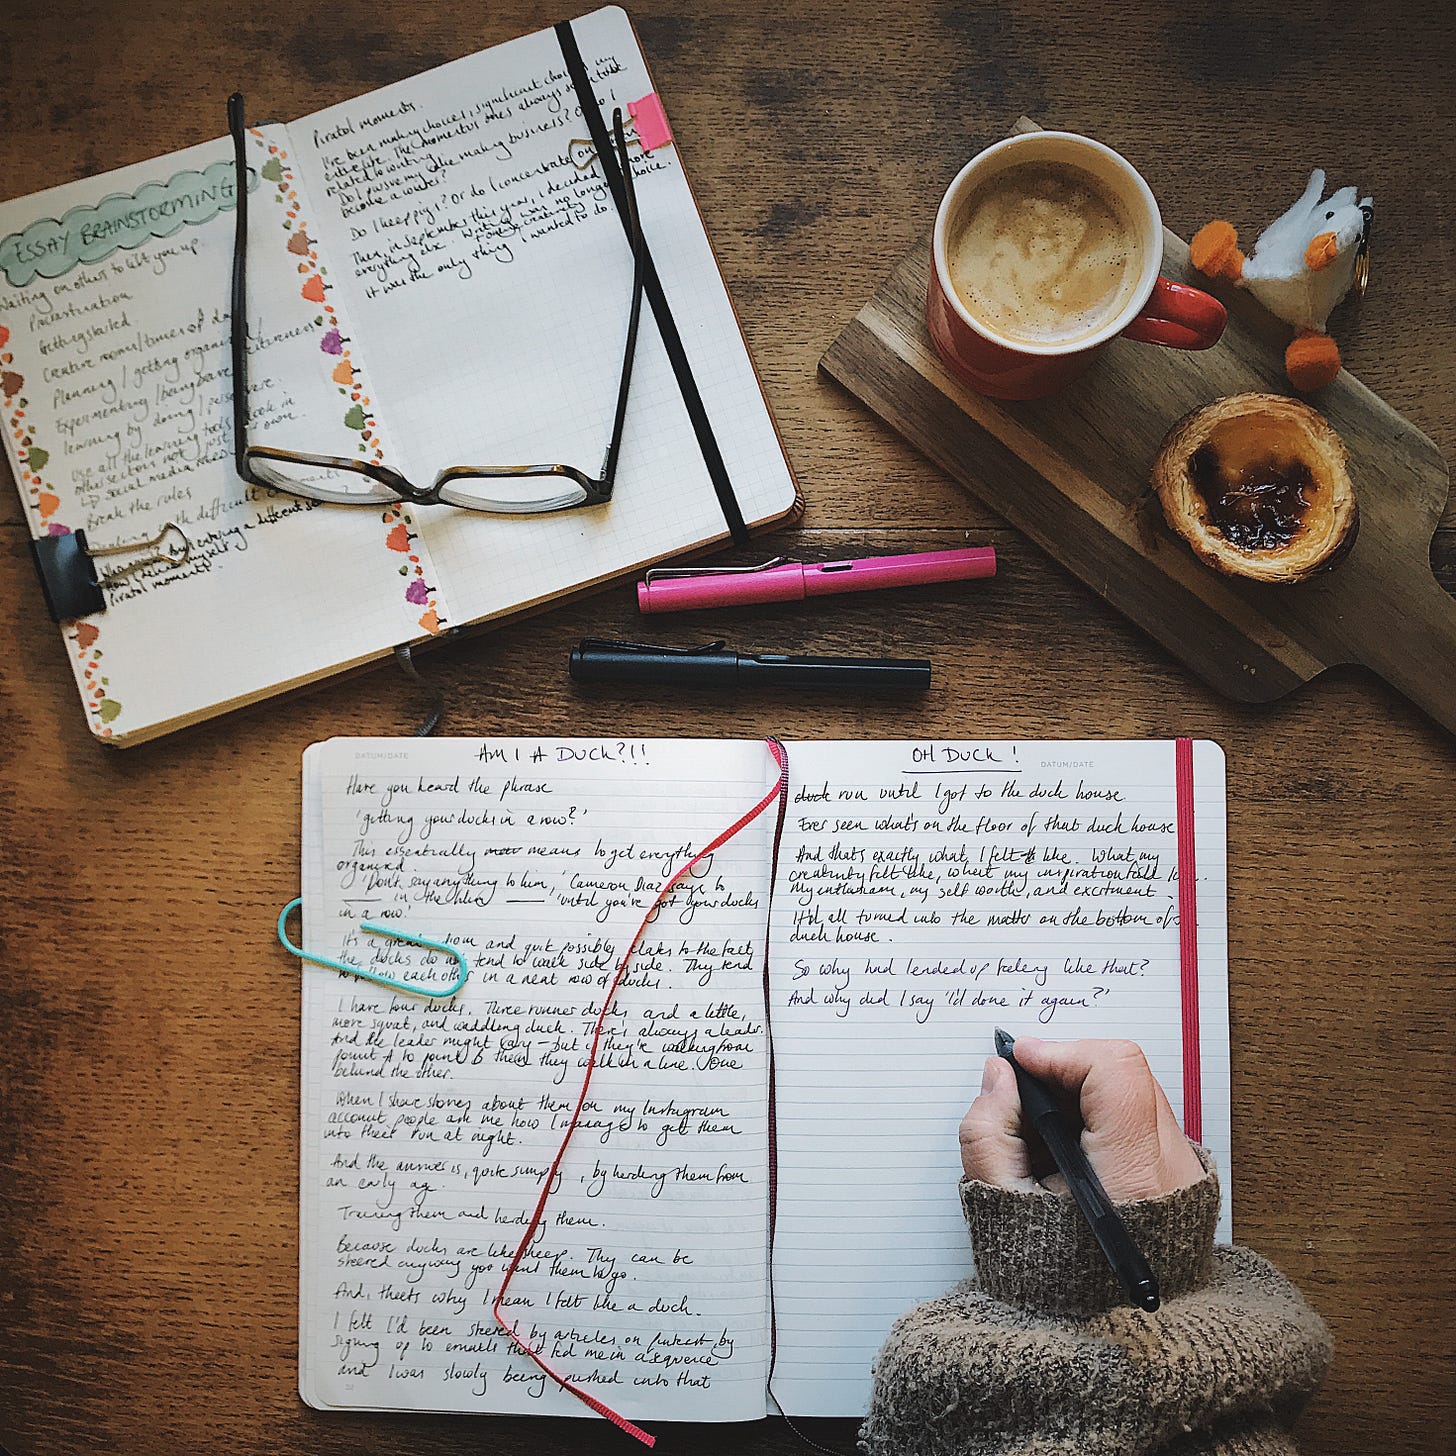 ESSAY BRAINSTORMING
Waiting on others to lift you up.
Procrastination
Getting started
Creative rooms/times of day
Planning / getting organised
Experimenting / being brave
learning by doing /
Use all the learning tools
other section not just
social media
Break the rules
with difficult
by entering a different
how I
Pivotal moments.
Pivotal moments.
I've been making choices, significant choices my
entire life. The momentus ones always seem
related to writing.
Do I pursue my making business? Or do I
become a writer?
Do I keep pigs? Or do I concentrate on
Then, in September this year, I decided
everything else. Writing was no longer a choice.
It was the only thing I wanted to do.
AM I A DUCK?!!
DATUM/DATE
Have you heard the phrase
'getting your ducks in a row?'
This essentially means to get everything
organised.
'Don't say anything to him,' Cameron Diaz says to
in the 'until you've got your ducks
in a row.'
It's a great and quite possibly relates to the fact
the ducks do not tend to walk side by side. They tend
to follow each other in a neat row of ducks.
I have four ducks. Three runner ducks and a little,
more squat, and waddling duck. There's always a leader.
And the leader might vary - but if they're walking from
point A to point B then they walk in a line. One
behind the other.
When I share stories about them on my Instagram
account, people ask me how I manage to get them
into their run at night.
And the answer is, quite simply, by herding them from
an early age.
Training them and herding them.
Because ducks are like sheep. They can be
steered anyway you want them to go.
And, that's why I mean I felt like a duck.
I felt I'd been steered by articles on Pinterest, by
signing up to emails that fed me in a sequence
and I was slowly being pushed into that
OH DUCK!
DATUM/DATE
duck run until I got to the duck house.
Ever seen what's on the floor of that duck house
And that's exactly what I felt like. What my
creativity felt like, what my inspiration felt
my enthusiasm, my self worth, and excitment.
It'd all turned into the matter on the bottom of
duck house.
So why had I ended up feeling like that?
And why did I say 'I'd done it again?'